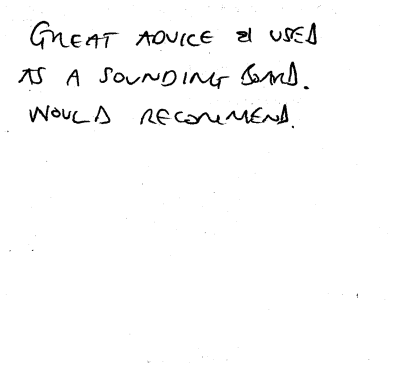 GREAT ADVICE & USED
AS A SOUNDING BOARD.
WOULD RECOMMEND.